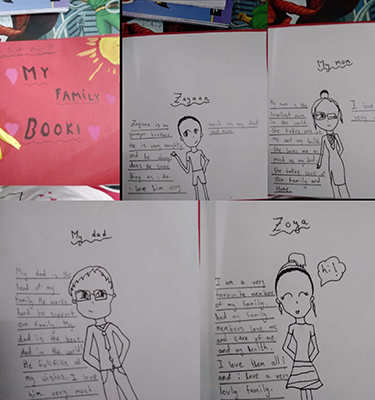 MY
FAMILY
BOOK!
Zaynan
Zaynan is my
younger brother.
He is very naughty
and he always
does the same
thing as i do.
i love him very
much as my dad
and mom.
My mom
My mom is the
mom
in the world.
She takes care of
me and my
She loves me as
much as my dad
She takes care of
our family and
Home.
I love
very
My dad
My dad is the
head of my
family. He works
hard to support
our family. My
dad is the best
dad in the world!
He fullfills all
my wishes. I love
him very much.
Zoya
hi!
I am a very
favourite member
of my family.
And my family
members love me
and care of me
and my health.
I love them all!
and i have a very
lovly family.